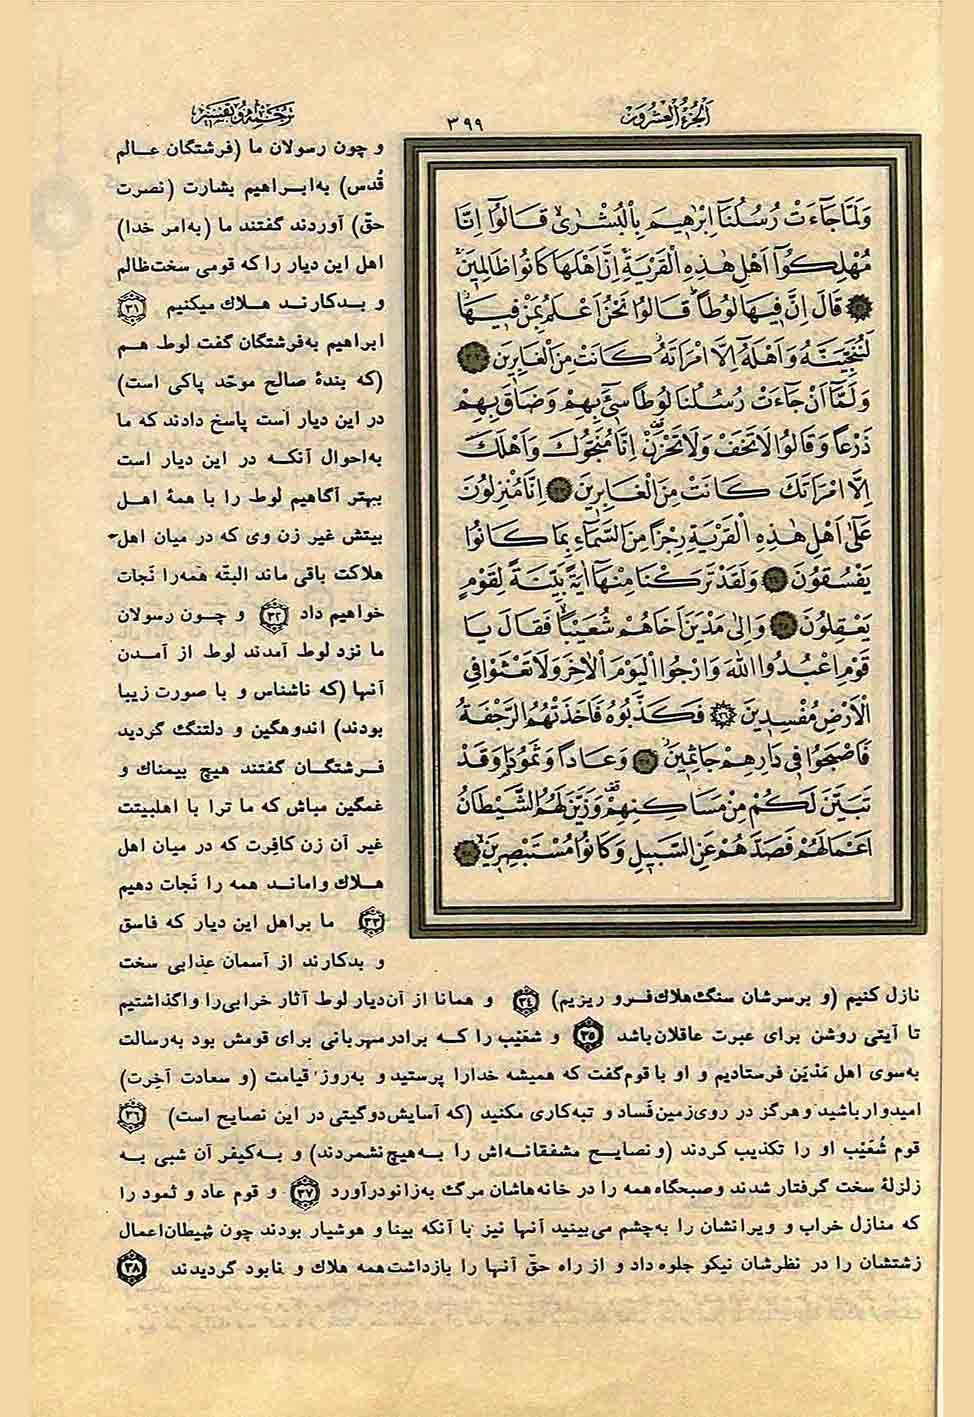 اَلْجُزْءُ الْعِشْرُونَ
٣٩٩
ترجمه و تفسیر
وَلَمَّا جَآءَتْ رُسُلُنَا اِبْرٰهِيمَ بِالْبُشْرٰى قَالُوٓا اِنَّا
مُهْلِكُوٓا اَهْلِ هٰذِهِ الْقَرْيَةِ اِنَّ اَهْلَهَا كَانُوا ظَالِمِينَ
٣١ قَالَ اِنَّ فِيهَا لُوطًا قَالُوا نَحْنُ اَعْلَمُ بِمَنْ فِيهَا
لَنُنَجِّيَنَّهُ وَاَهْلَهُٓ اِلَّا امْرَاَتَهُ كَانَتْ مِنَ الْغَابِرِينَ ٣٢
وَلَمَّٓا اَنْ جَآءَتْ رُسُلُنَا لُوطًا سِٓئَ بِهِمْ وَضَاقَ بِهِمْ
ذَرْعًا وَقَالُوا لَا تَخَفْ وَلَا تَحْزَنْ اِنَّا مُنَجُّوكَ وَاَهْلَكَ
اِلَّا امْرَاَتَكَ كَانَتْ مِنَ الْغَابِرِينَ ٣٣ اِنَّا مُنْزِلُونَ
عَلٰٓى اَهْلِ هٰذِهِ الْقَرْيَةِ رِجْزًا مِنَ السَّمَآءِ بِمَا كَانُوا
يَفْسُقُونَ ٣٤ وَلَقَدْ تَرَكْنَا مِنْهَٓا اٰيَةً بَيِّنَةً لِقَوْمٍ
يَعْقِلُونَ ٣٥ وَاِلٰى مَدْيَنَ اَخَاهُمْ شُعَيْبًا فَقَالَ يَا
قَوْمِ اعْبُدُوا اللّٰهَ وَارْجُوا الْيَوْمَ الْاٰخِرَ وَلَا تَعْثَوْا فِي
الْاَرْضِ مُفْسِدِينَ ٣٦ فَكَذَّبُوهُ فَاَخَذَتْهُمُ الرَّجْفَةُ
فَاَصْبَحُوا فِي دَارِهِمْ جَاثِمِينَ ٣٧ وَعَادًا وَثَمُودَا وَقَدْ
تَبَيَّنَ لَكُمْ مِنْ مَسَاكِنِهِمْ وَزَيَّنَ لَهُمُ الشَّيْطَانُ
اَعْمَالَهُمْ فَصَدَّهُمْ عَنِ السَّبِيلِ وَكَانُوا مُسْتَبْصِرِينَ ٣٨
و چون رسولان ما (فرشتگان عـالم
قُدس) به‌ابـراهیم بشارت (نصرت
حقّ) آوردند گفتند ما (به‌امر خدا)
اهل این دیار را که قومی سخت‌ظالم
و بـدکارنـد هـلاك میکنیم ٣١
ابراهیم به‌فرشتگان گفت لوط هـم
(که بندهٔ صالح موحّد پاکی است)
در این دیار است پاسخ دادند که ما
به‌احوال آنکـه در این دیار است
بهتر آگاهیم لوط را با همهٔ اهـل
بیتش غیر زن وی که در میان اهل
هلاکت باقی ماند البتّه همه‌را نَجات
خواهیم داد ٣٢ و چـون رسولان
ما نزد لوط آمدند لوط از آمـدن
آنها (که ناشناس و با صورت زیبا
بودند) اندوهگین و دلتنگ گردید
فـرشتگـان گفتند هیچ بیمناك و
غمگین مباش که ما ترا با اهلبیتت
غیر آن زن کافرت که در میان اهل
هـلاك وامانـد همه را نَجات دهیم
٣٣ ما براهل این دیار که فاسق
و بدکارند از آسمان عذابی سخت
نازل کنیم (و برسرشان سنگ هلاك‌فـرو ریزیم) ٣٤ و همانا از آن‌دیار لوط آثار خرابی‌را واگذاشتیم
تا آیتی روشن برای عبرت عاقلان‌باشد ٣٥ و شعَیْب را کـه برادرمهربانی برای قومش بود به‌رسالت
به‌سوی اهل مَدْیَن فرستادیم و او با قوم‌گفت که همیشه خدارا پرستید و به‌روز قیامت (و سعادت آخِرت)
امیدوار باشید و هرگز در روی‌زمین فَساد و تبه‌کاری مکنید (که آسایش‌دوگیتی در این نصایح است) ٣٦
قوم شُعَیْب او را تکذیب کردند (و نصایـح مشفقانـه‌اش را بـه‌هیچ نشمردند) و به‌کیفر آن شبی به
زلزلهٔ سخت گرفتار شدند و صبحگاه همه را در خانه‌هاشان مرگ به‌زانو درآورد ٣٧ و قوم عاد و ثمود را
که منازل خراب و ویرانشان را به‌چشم می‌بینید آنها نیز با آنکه بینا و هوشیار بودند چون شیطان‌اعمال
زشتشان را در نظرشان نیکو جلوه داد و از راه حقّ آنها را بازداشت‌همه هلاك و نابود گردیدند ٣٨